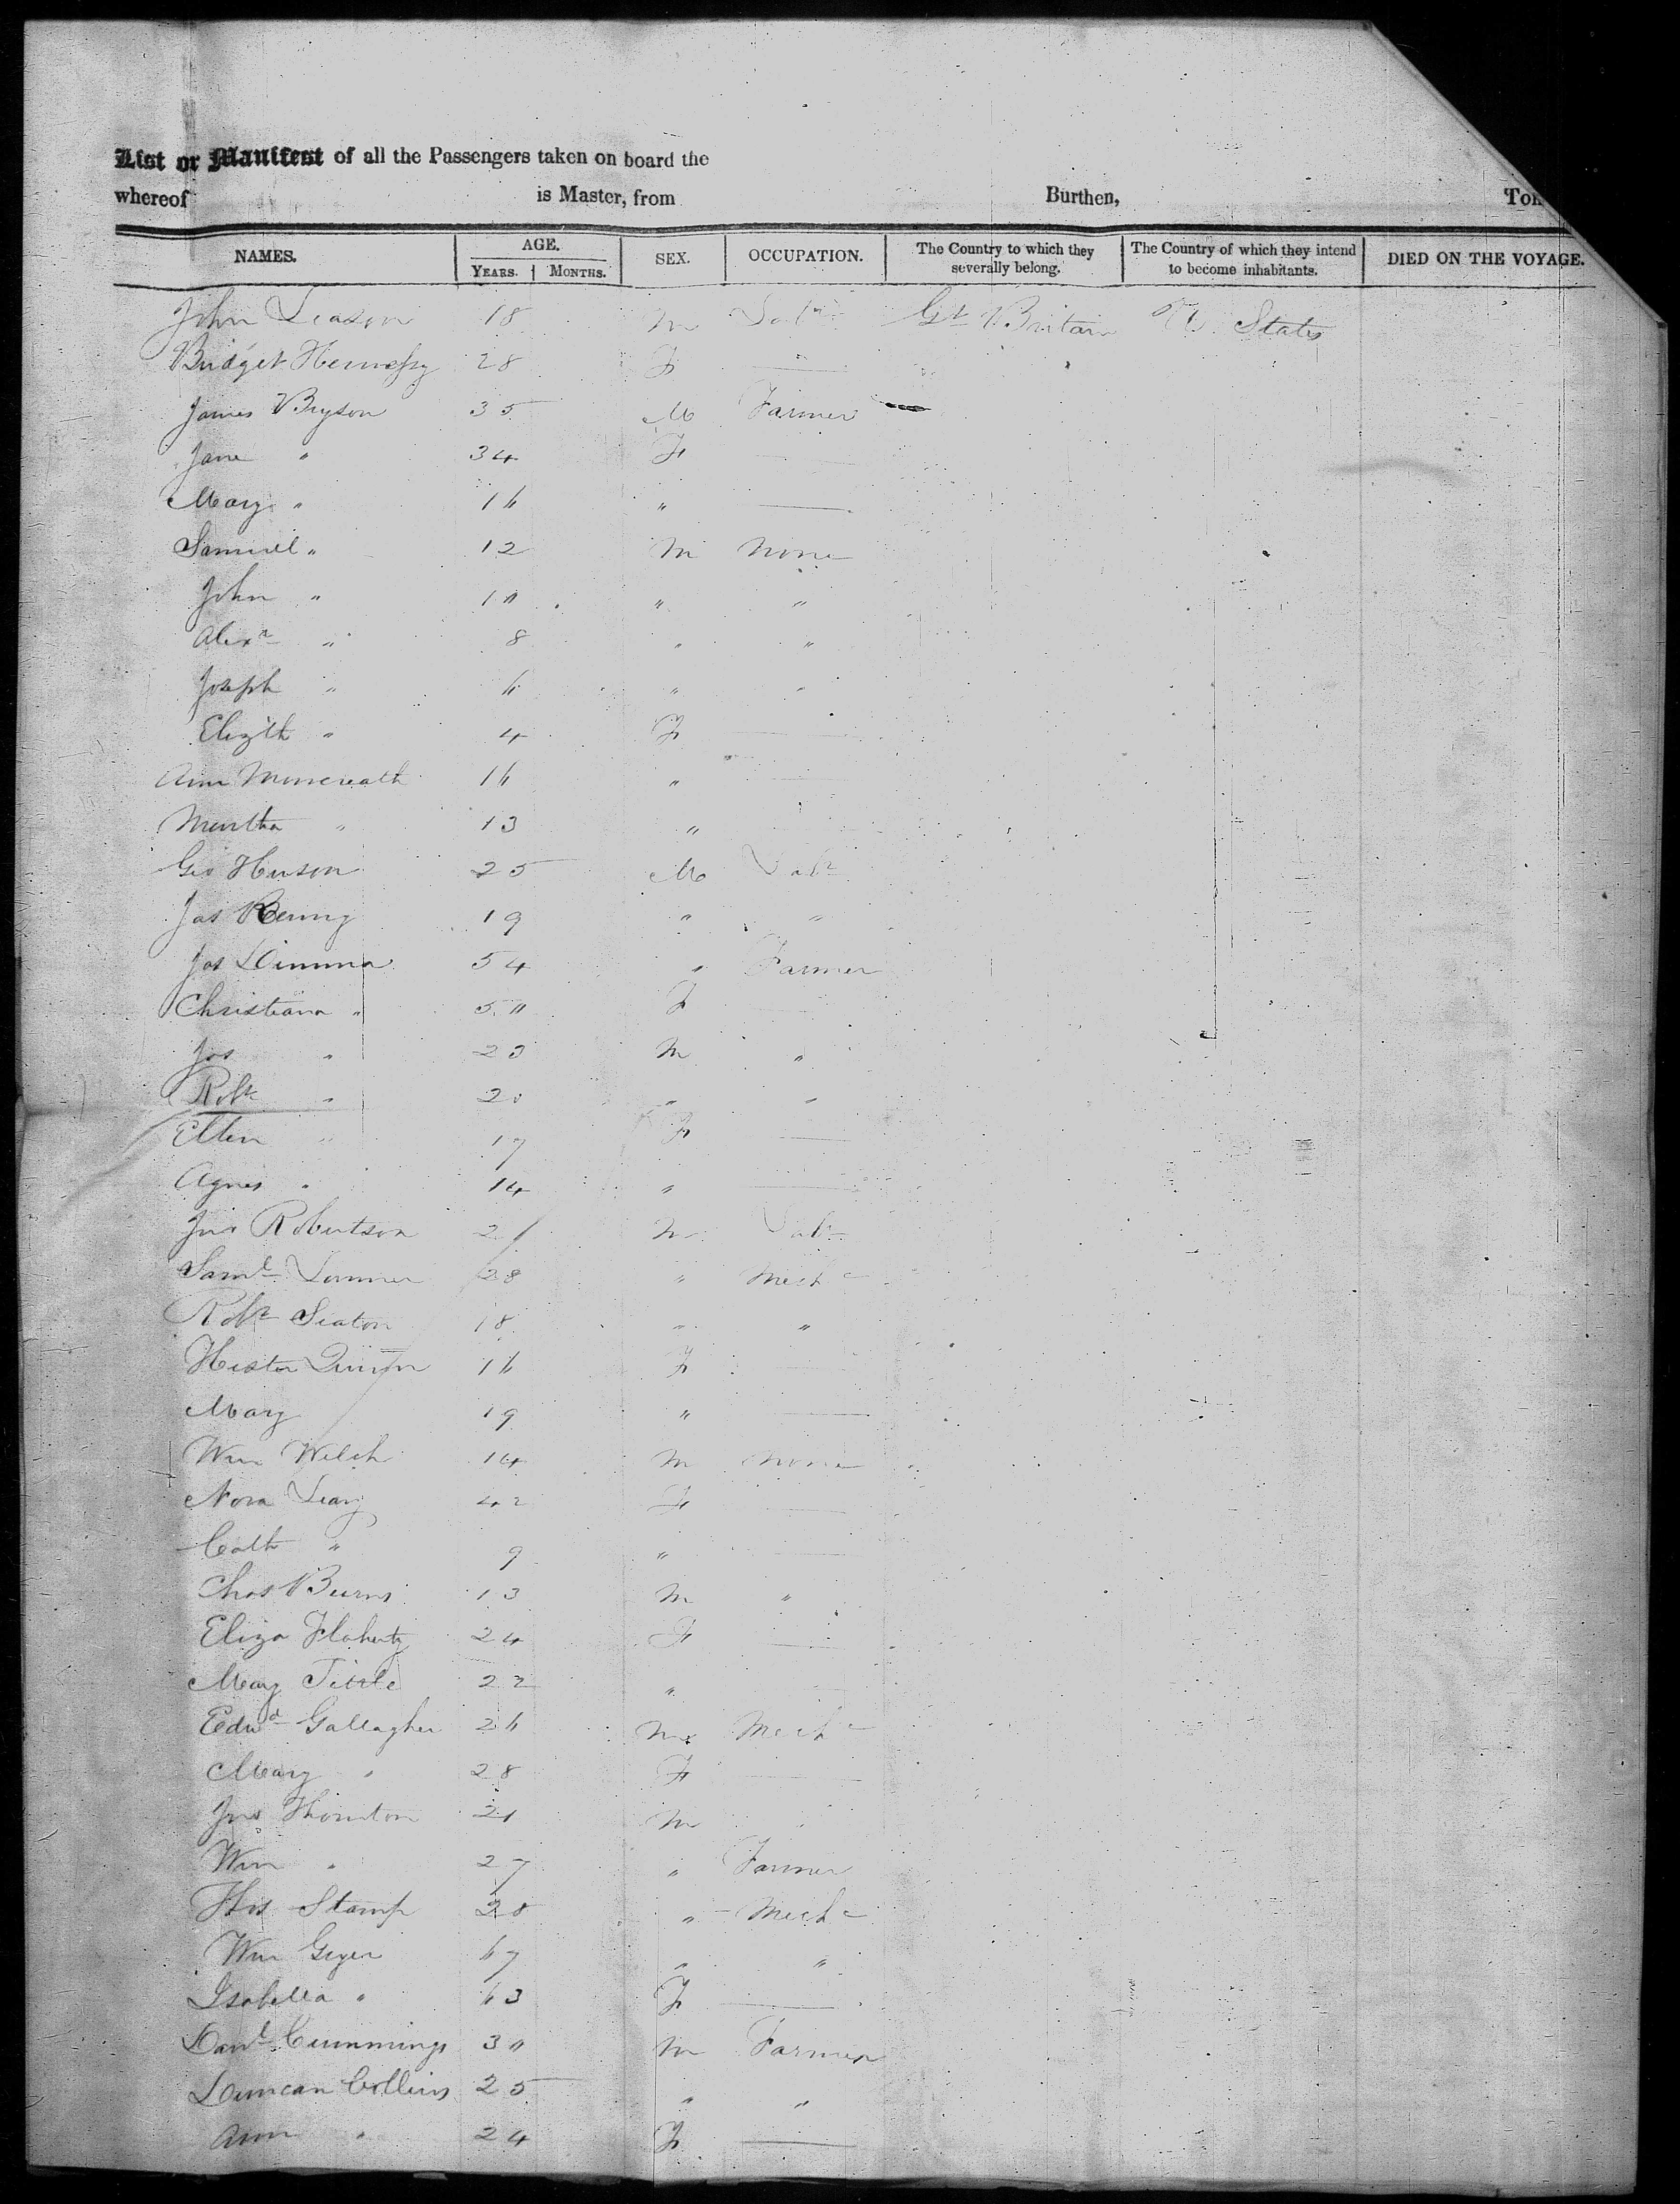 List or Manifest of all the Passengers taken on board the
whereof is Master, from Burthen, Ton
NAMES. AGE. YEARS. MONTHS. SEX. OCCUPATION. The Country to which they severally belong. The Country of which they intend to become inhabitants. DIED ON THE VOYAGE.
John Leason 18 M Labr Gt Britain U. States
Bridget Hennessy 28 F —
James Bryson 35 M Farmer
Jane " 34 F —
Mary " 16 " —
Samuel " 12 M None
John " 10 " "
Alexr " 8 " "
Joseph " 6 " "
Elizth " 4 F —
Ann Muncreath 16 " —
Martha " 13 " —
Geo Huson 25 M Labr
Jas 19 " "
Jas Dimma 54 " Farmer
Christiana " 50 F —
Jos " 23 M "
Robt " 20 " "
Ellen " 17 F —
Agnes " 14 " —
Jno Robertson 21 M Labr
Saml 28 " Mechc
Robt Seaton 18 " "
Hester 16 F —
Mary 19 " —
Wm Welch 14 M None
Nora Leary 42 F —
Cath " 9 " —
Chas Burns 13 M "
Eliza Flaherty 24 F —
Mary Tittle 22 " —
Edwd Gallagher 26 M Mechc
Mary " 28 F —
Jno Thornton 21 M "
Wm " 27 " Farmer
Thos Stamp 28 " Mechc
Wm Geyer 67 " "
Isabella " 63 F —
Danl Cummings 30 M Farmer
Duncan Collins 25 " "
Ann " 24 F —